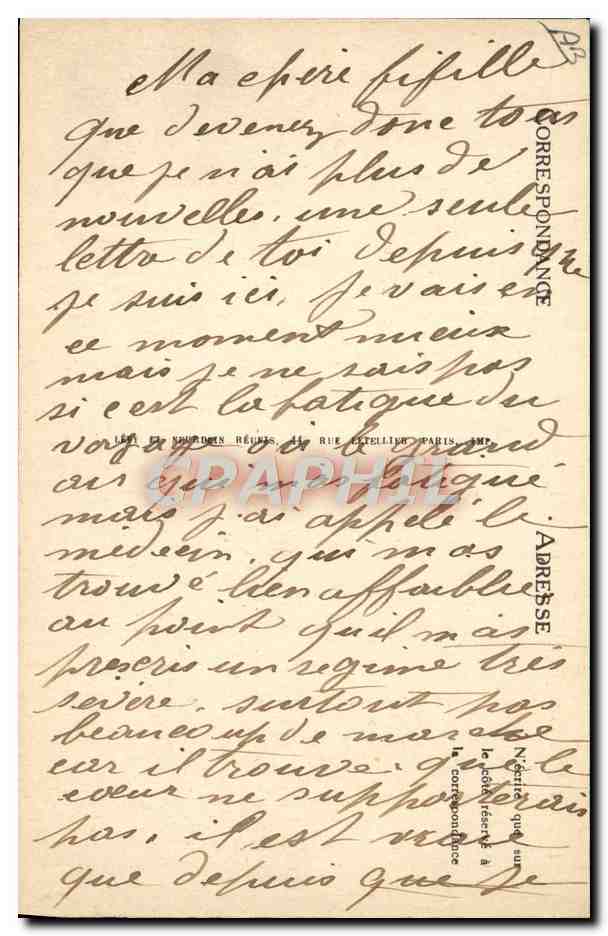 AB
Ma chère fifille
que devenez donc tous
que je n'ai plus de
nouvelles, une seule
lettre de toi depuis que
je suis ici, je vais en
ce moment mieux
mais je ne sais pas
si c'est la fatigue du
voyage où le grand
air qui m'as fatigué
mais j'ai appelé le
médecin, qui m'as
trouvé bien affaiblie
au point qu'il m'as
prescris un regime très
sevère, surtout pas
beaucoup de marche
car il trouve que le
coeur ne supporterais
pas, il est vrai
que depuis que je
CORRESPONDANCE
ADRESSE
N'écrire que sur
le côté réservé à
la correspondance
LÉVY ET NEURDEIN RÉUNIS, 44, RUE LETELLIER, PARIS, IMP.
CPAPHIL